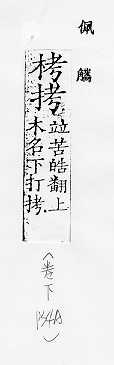 佩觿
栲拷
竝苦皓翻上
木名下打拷
(卷下